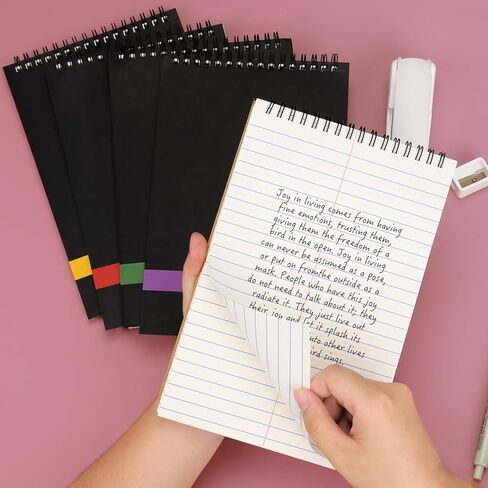 Joy in living comes from having
fine emotions, trusting them,
giving them the freedom of a
bird in the open. Joy in living
can never be assumed as a pose,
or put on fromthe outside as a
mask. People who have this joy
do not need to talk about it; they
radiate it. They just live out
their joy and let it splash its
into other lives
bird sings.